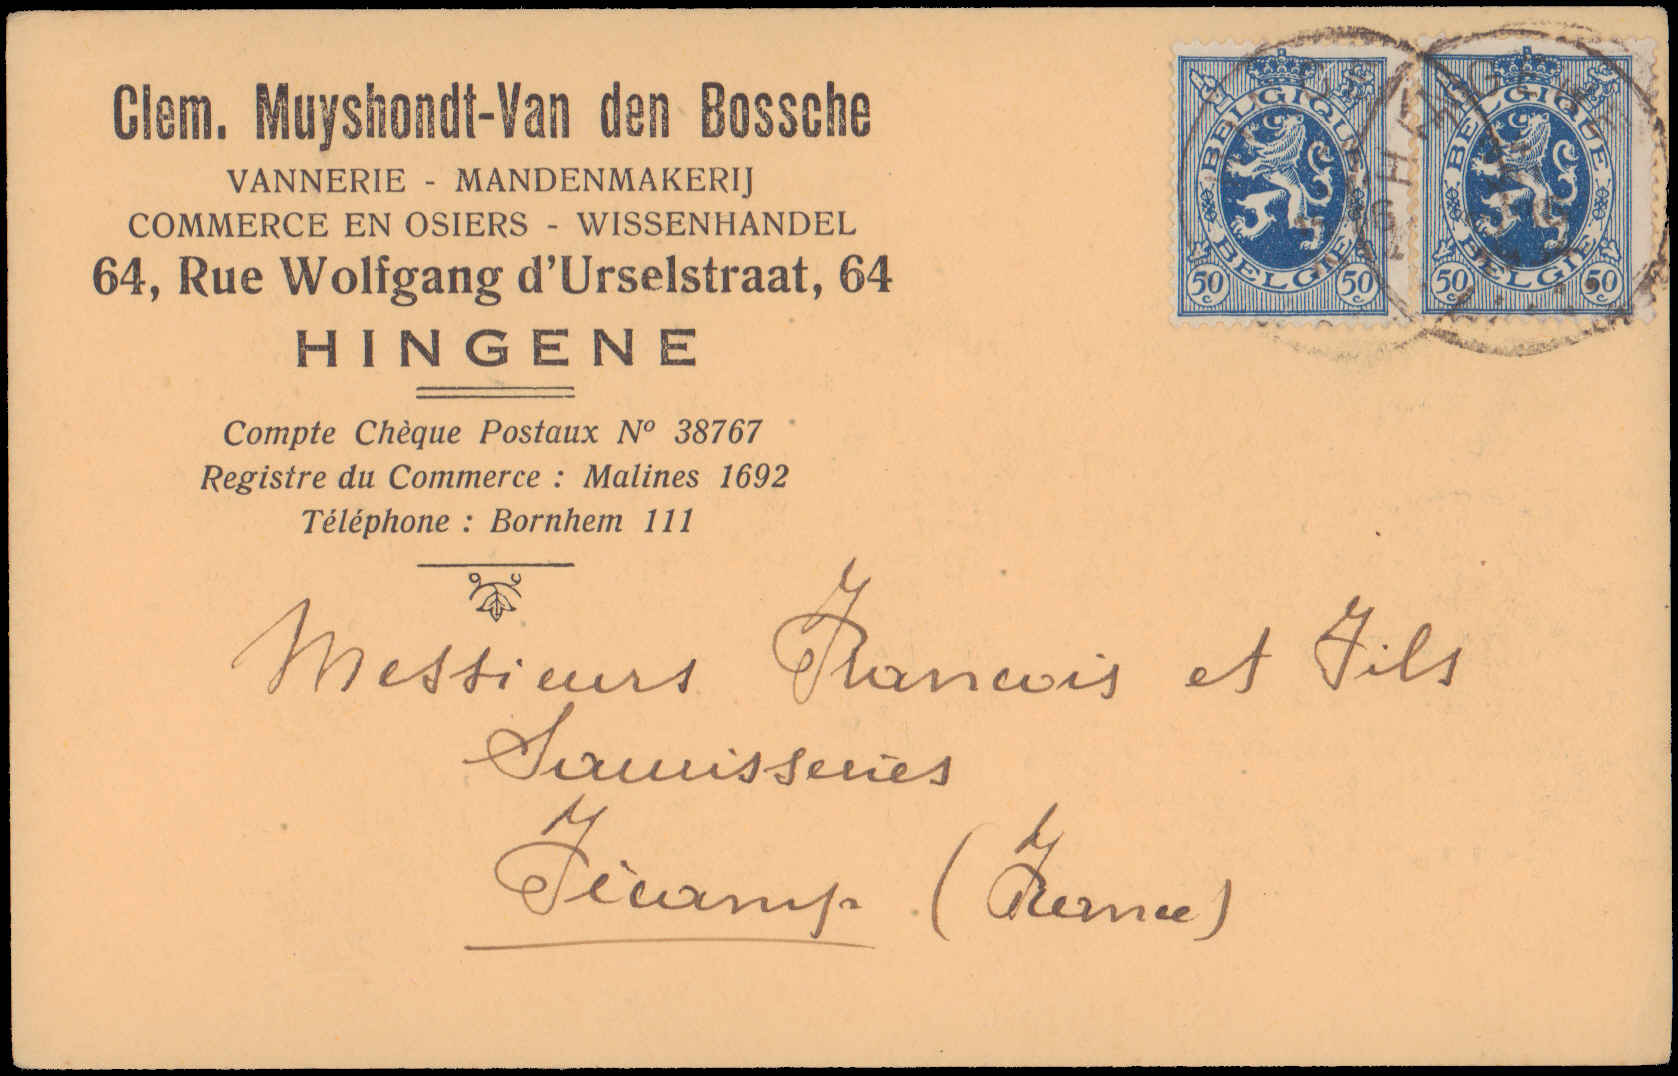 Clem. Muyshondt-Van den Bossche
VANNERIE - MANDENMAKERIJ
COMMERCE EN OSIERS - WISSENHANDEL
64, Rue Wolfgang d'Urselstraat, 64
HINGENE
Compte Chèque Postaux Nº 38767
Registre du Commerce : Malines 1692
Téléphone : Bornhem 111
BELGIQUE
BELGIE
50 c 50 c
BELGIQUE
BELGIE
50 c 50 c
Messieurs Francois et Fils
Saurisseries
Fécamp (France)